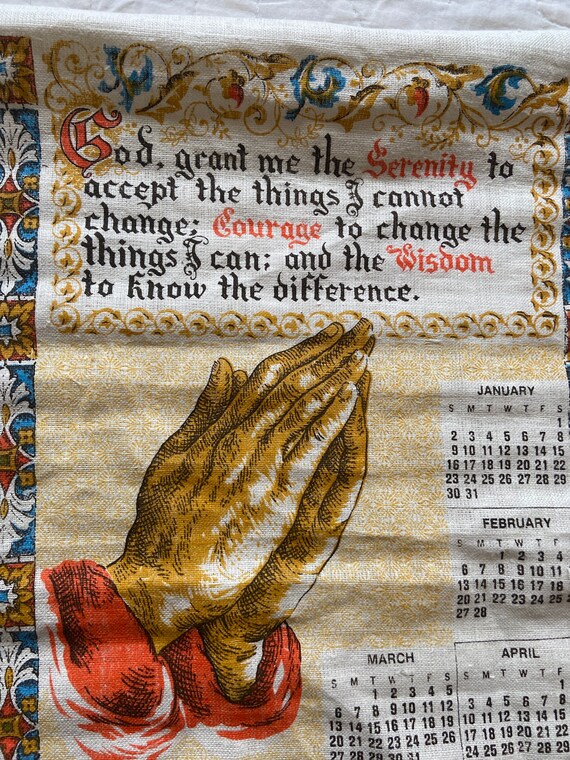 God, grant me the Serenity to
accept the things I cannot
change; Courage to change the
things I can; and the Wisdom
to know the difference.
JANUARY
S M T W T F S
1
2 3 4 5 6 7 8
9 10 11 12 13 14 15
16 17 18 19 20 21 22
23 24 25 26 27 28 29
30 31
FEBRUARY
S M T W T F
1 2 3 4
6 7 8 9 10 11
13 14 15 16 17 18
20 21 22 23 24 25
27 28
MARCH
S M T W T F S
1 2 3 4 5
6 7 8 9 10 11 12
13 14 15 16 17 18 19
20 21 22 23 24 25 26
27 28 29 30 31
APRIL
S M T W T F
1
3 4 5 6 7 8
10 11 12 13 14 15
17 18 19 20 21 22
24 25 26 27 28 29